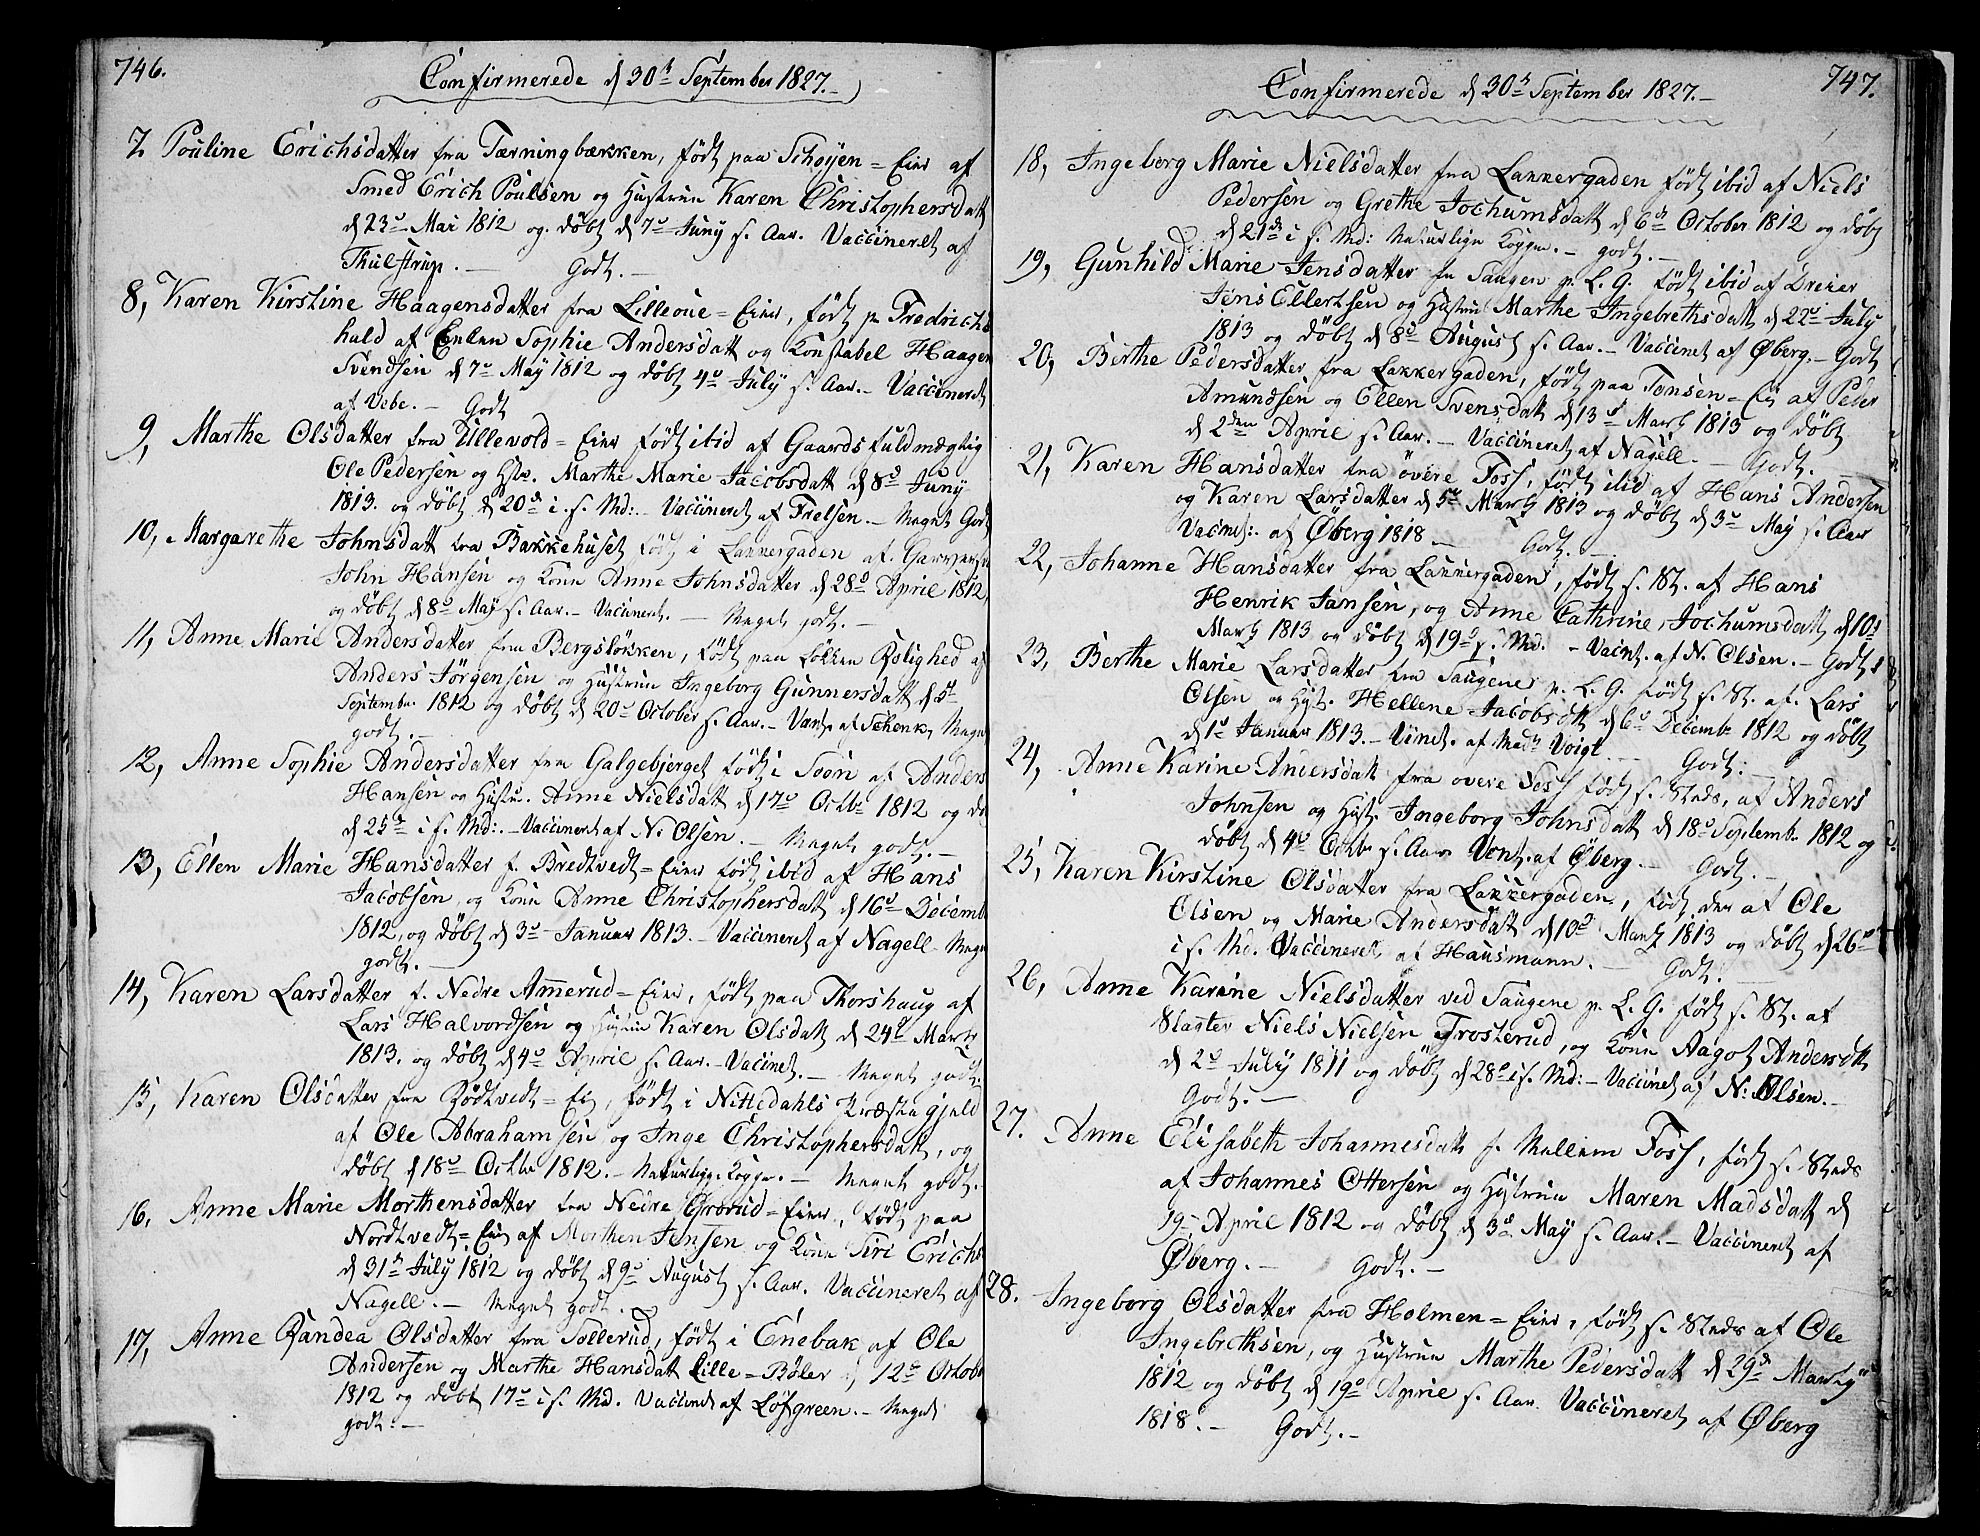 746.
Confirmerede d 30te September 1827.
7. Pouline Erichsdatter fra Tærningbækken, født paa Schøyen=Eier af
Smed Erich Poulsen og Hustrue Karen Christophersdatt
d 23de Mai 1812 og døbt d 7de Juny s. Aar. Vaccineret af
Thulstrup. — Godt. —
8, Karen Kirstine Haagensdatter fra Lilleøue=Eier, født p Fredrichs
hald af Enken Sophie Andersdatt og Konstabel Haagen
Svendsen d 7de May 1812 og døbt 4de July s. Aar. — Vaccineret
af Vebe. — Godt
9, Marthe Olsdatter fra Ullevold=Eier født ibid af Gaardsfuldmægtig
Ole Pedersen og Hst. Marthe Marie Jacobsdatt d 8de Juny
1813. og døbt d 20de i s. Md: — Vaccineret af Frelsen. — Meget Godt
10, Margarethe Johnsdatt fra Bakkehuset født i Lakkergaden af
John Hansen og Kone Anne Johnsdatter d 28de April 1812,
og døbt d 8de May s. Aar. — Vaccineret. — Meget godt. —
11, Anne Marie Andersdatter fra Bergsløkken, født paa Løkken Rolighed af
Anders Jörgensen og Hustrue Ingeborg Gunnersdatt d 5te
Septembr. 1812 og døbt d 20de October s. Aar. — Vacnt. af Schenk, Meget
godt. —
12, Anne Sophie Andersdatter fra Galgebjerget født i Soon af Anders
Hansen og Hustru. Anne Nielsdatt d 17de Octbr 1812 og dø
d 25de i s. Md:. — Vaccineret af N. Olsen. — Meget godt. —
13, Ellen Marie Hansdatter f. Bredtvedt=Eier født ibid af Hans
Jacobsen, og Kone Anne Christophersdatt d 16de Decemb
1812, og døbt d 3de Januar 1813. — Vaccineret af Nagell Meget
godt. —
14, Karen Larsdatter f. Nedre Ammerud=Eier, født paa Thorshaug af
Lars Halvordsen og Hustrue Karen Olsdatt d 24de Martz
1813. og døbt d 4de April s. Aar. — Vaccinet. — Meget godt.
15, Karen Olsdatter fra Rödtvedt=Ei, født i Nittedahls Præstegjeld
af Ole Abrahamsen og Inge Christophersdatt, og
døbt d 18de Octbr 1812. — Naturlige Kopper. — Meget godt.
16. Anne Marie Morthensdatter fra Nedre Grorud=Eier, født paa
Nordtvedt=Eie af Morthen Jensen og Kone Siri Erichs
d 31te July 1812 og døbt d 9de August s. Aar. Vaccineret af
Nagell. — Meget godt. —
17, Anne Randea Olsdatter fra Tollerud, født i Enebak af Ole
Andersen og Marthe Hansdatt Lille=Bøler d 12te Octobr
1812 og døbt 17de i s. Md. Vaccinet af Löfgreen. — Meget
godt: —
747.
Confirmerede d 30te September 1827. —
18, Ingeborg Marie Nielsdatter fra Lakkergaden født ibid af Niels
Pedersen og Grethe Jochumsdatt d 6te October 1812 og døbt
d 21de i s. Md: Naturlige Kopper. — godt. —
19, Gunhild Marie Jensdatter fr Saugen p. L. G. født ibid af Dreier
Jens Ellertsen og Hustrue Marthe Ingebrethsdatt d 22de July
1813 og døbt d 8de August s. Aar. — Vaccinet af Øberg. — Godt
20, Birthe Pedersdatter fra Lakkergaden, født paa Tomsen=Ei af Peder
Amundsen og Ellen Svensdatt d 13de Martz 1813 og døbt
d 2den April s. Aar. — Vaccineret af Nagell. — Godt.
21, Karen Hansdatter fra övere Foss, født ibid af Hans Andersen
og Karen Larsdatter d 5te Martz 1813 og døbt d 3de May s. Aar
Vaccinet: af Øberg 1818 — Godt. —
22, Johanne Hansdatter fra Lakkergaden, født s. St. af Hans
Henrik Jansen, og Anne Cathrine Jochumsdatt d 10de
Martz 1813 og døbt d 19de s. Md. — Vacint. af N. Olsen. — Godt
23, Berthe Marie Larsdatter fra Saugene p. L. G. født s. St. af. Lars
Olsen og Hst. Hellene Jacobsdtt d 6te Decembr 1812 og døbt
d 1te Januar 1813. — Vacinet. af Madm Voigt — Godt. —
24, Anne Karine Andersdatt fra overe Foss født s. Steds, af Anders
Johnsen og Hst. Ingeborg Johnsdatt d 18de Septembr 1812 og
døbt d 4de Octbr s. Aar. Vacnt. af Øberg. — Godt. —
25, Karen Kirstine Olsdatter fra Lakkergaden, født der af Ole
Olsen og Marie Andersdatt d 10de Martz 1813 og døbt d 26de
i s. Md. Vaccineret af Hausmann. — Godt. —
26, Anne Karine Nielsdatter ved Saugene p. L. G. født s. St. af
Slagter Niels Nielsen Trosterud, og Kone Aagot Andersdtt
d 2de July 1811 og døbt d 28de i s. Md: — Vaccinet af N: Olsen. —
Godt. —
27. Anne Elisabeth Johannesdatt f. Mellem Foss, født s. Steds
af Johannes Ottersen og Hustrue Maren Madsdatt d
19de April 1812 og døbt d 3de May s. Aar. — Vaccineret af
Øberg. — Godt. —
28. Ingeborg Olsdatter fra Holmen=Eier, født s. Steds af Ole
Ingebrethsen, og Hustrue Marthe Pedersdatt d 29de Martz
1812 og døbt d 19de Aprie s. Aar. Vaccineret af Øberg
1818. — Godt. —